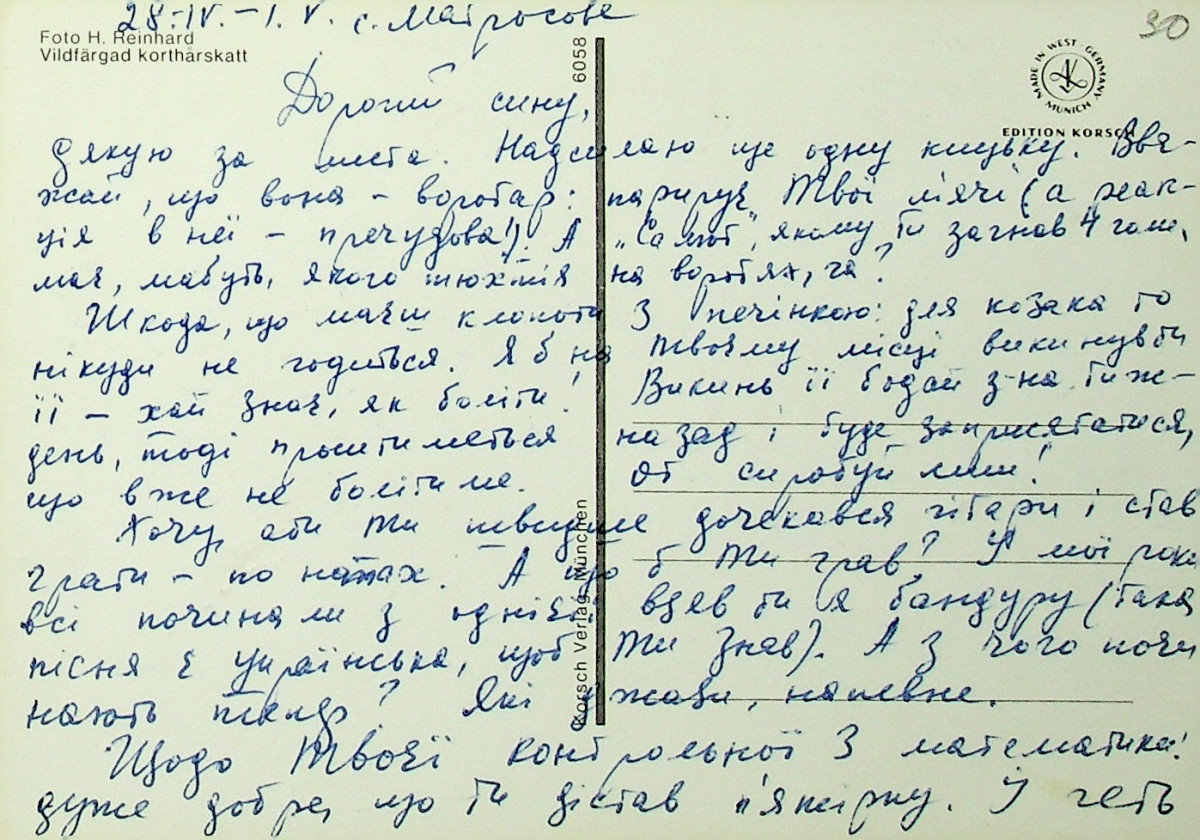 28-IV.-1.V. с. Матросове
30
Foto H. Reinhard
Vildfärgad korthårskatt
6058
MADE IN WEST-GERMANY
MUNICH
EDITION KORSCH
Korsch Verlag München
Дорогий сину,
Дякую за листа. Надсилаю ще одну кицьку. Вва-
жай, що вона – воротар: парирує Твої м'ячі (а реак-
ція в неї – пречудова!). А „Самот", якому Ти загнав 4 голи,
має, мабуть, якого тюхтія на воротях, га?
Шкода, що маєш клопоти з печінкою: для козака то
нікуди не годиться. Я б на твоєму місці викинув би
її – хай знає, як боліти! Викинь її бодай з-на тиж-
день, тоді проситиметься назад і буде заприсягатися,
що вже не болітиме. От спробуй лиш!
Хочу, аби Ти швидше дочекався гітари і став
грати – по нотах. А що б Ти грав? У мої роки
всі починали з однієї: взяв би я бандуру (така
пісня є українська, щоб Ти знав). А з чого почи
нають тепер? Які джази, напевне.
Щодо Твоєї контрольної з математики:
дуже добре, що ти дістав п'ятірку. Й геть